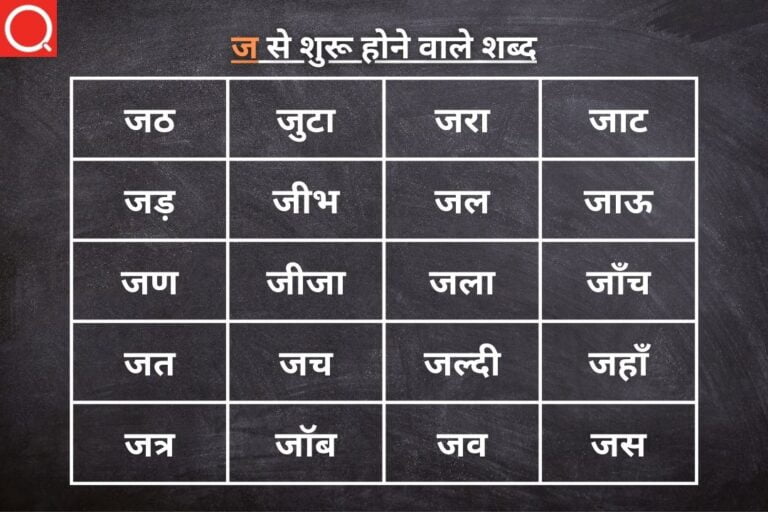 ज से शुरू होने वाले शब्द
जठ जुटा जरा जाट
जड़ जीभ जल जाऊ
जण जीजा जला जाँच
जत जच जल्दी जहाँ
जत्र जॉब जव जस